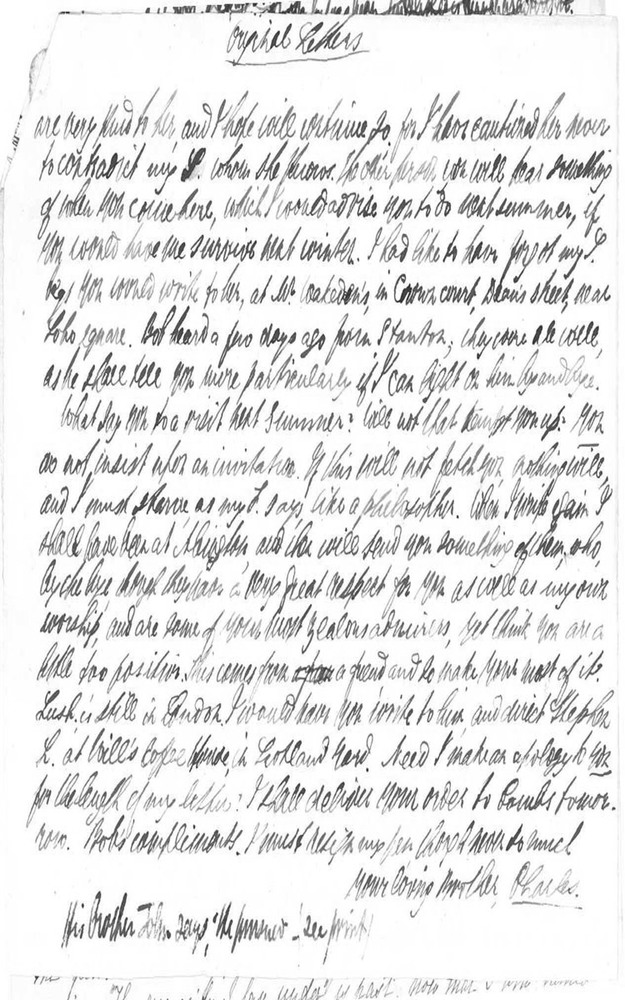 Original Letters
are very kind to her, and I hope will continue so. for I have cautioned her never
to contradict my S. whom she knows. The other person you will hear something
of when you come here, which I would advise you to do next summer, if
you would have me survive next winter. I had like to have forgot my S.
begs you would write to her, at Mr. in Crown court, Dean's street, near
Soho square. Bob heard a few days ago from Stanton; they were all well,
as he shall tell you more particularly if I can light on him by and bye.
What say you to a visit next Summer? Will not that tempt you up? You
do not insist upon an invitation. If this will not fetch you nothing will,
and I must starve as my F. says like a philosopher. When I write again I
shall have been at Abington and then will send you something of them, who,
by the bye though they have a very great respect for you as well as my own
worship, and are some of your most zealous admirers, yet think you are a
little too positive. This comes from a friend and so make your most of it.
Lush. is still in London. I would have you write to him, and direct Stephen
L. at Will's Coffee House, in Scotland Yard. Need I make an apology to you
for the length of my letter? I shall deliver your order to Combs tomor-
row. Bob's compliments. I must resign my pen tho' I never so much
Your loving Brother, Charles.
His Brother John says, 'He pursued - see print